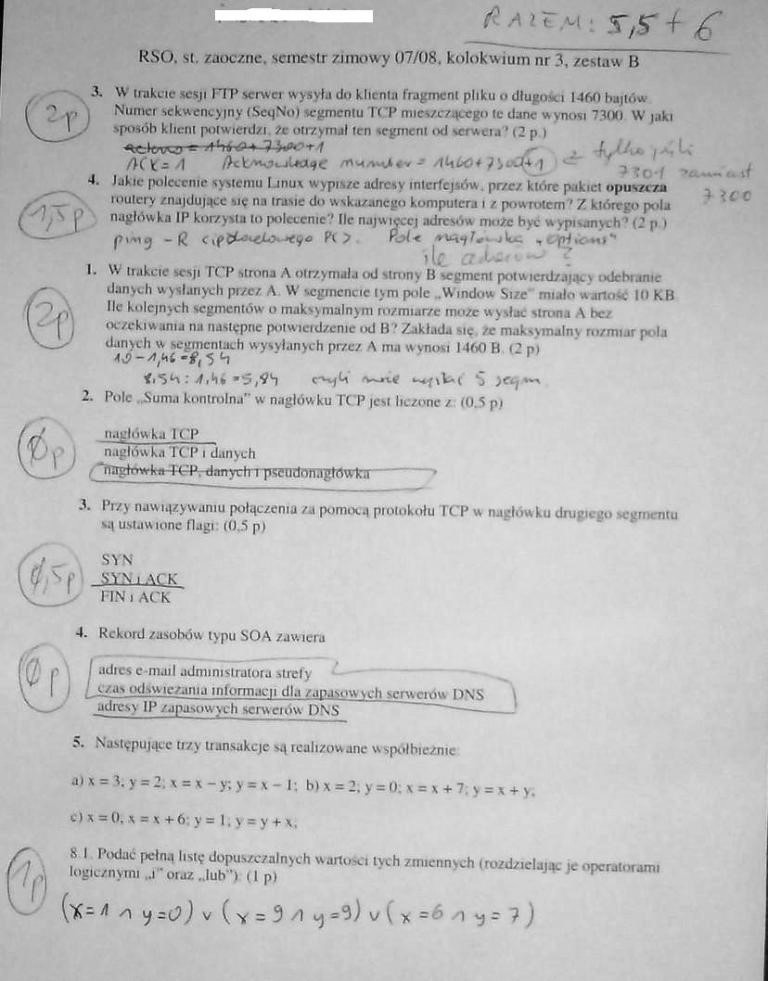 RAZEM: 5,5 + 6
RSO, st. zaoczne, semestr zimowy 07/08, kolokwium nr 3, zestaw B
2p
3. W trakcie sesji FTP serwer wysyła do klienta fragment pliku o długości 1460 bajtów.
Numer sekwencyjny (SeqNo) segmentu TCP mieszczącego te dane wynosi 7300. W jaki
sposób klient potwierdzi, że otrzymał ten segment od serwera? (2 p.)
= 1460+7300+1
ACK=1 Acknowledge number = 1460+7300+1 tylko jeśli
7301 zamiast
7300
1,5p
4. Jakie polecenie systemu Linux wypisze adresy interfejsów, przez które pakiet opuszcza
routery znajdujące się na trasie do wskazanego komputera i z powrotem? Z którego pola
nagłówka IP korzysta to polecenie? Ile najwięcej adresów może być wypisanych? (2 p.)
ping -R <ip docelowego PC>. Pole nagłówka „options"
ile adresów?
2p
1. W trakcie sesji TCP strona A otrzymała od strony B segment potwierdzający odebranie
danych wysłanych przez A. W segmencie tym pole „Window Size" miało wartość 10 KB.
Ile kolejnych segmentów o maksymalnym rozmiarze może wysłać strona A bez
oczekiwania na następne potwierdzenie od B? Zakłada się, że maksymalny rozmiar pola
danych w segmentach wysyłanych przez A ma wynosi 1460 B. (2 p)
10-1,46=8,54
8,54:1,46=5,84 czyli może wysłać 5 segm.
2. Pole „Suma kontrolna" w nagłówku TCP jest liczone z: (0,5 p)
0p
nagłówka TCP
nagłówka TCP i danych
nagłówka TCP, danych i pseudonagłówka
3. Przy nawiązywaniu połączenia za pomocą protokołu TCP w nagłówku drugiego segmentu
są ustawione flagi: (0,5 p)
0,5p
SYN
SYN i ACK
FIN i ACK
4. Rekord zasobów typu SOA zawiera
0p
adres e-mail administratora strefy
czas odświeżania informacji dla zapasowych serwerów DNS
adresy IP zapasowych serwerów DNS
5. Następujące trzy transakcje są realizowane współbieżnie:
a) x = 3; y = 2; x = x – y; y = x – 1; b) x = 2; y = 0; x = x + 7; y = x + y;
c) x = 0; x = x + 6; y = 1; y = y + x;
1p
8.1. Podać pełną listę dopuszczalnych wartości tych zmiennych (rozdzielając je operatorami
logicznymi „i" oraz „lub"): (1 p)
(x=1 ∧ y=0) ∨ (x=9 ∧ y=9) ∨ (x=6 ∧ y=7)